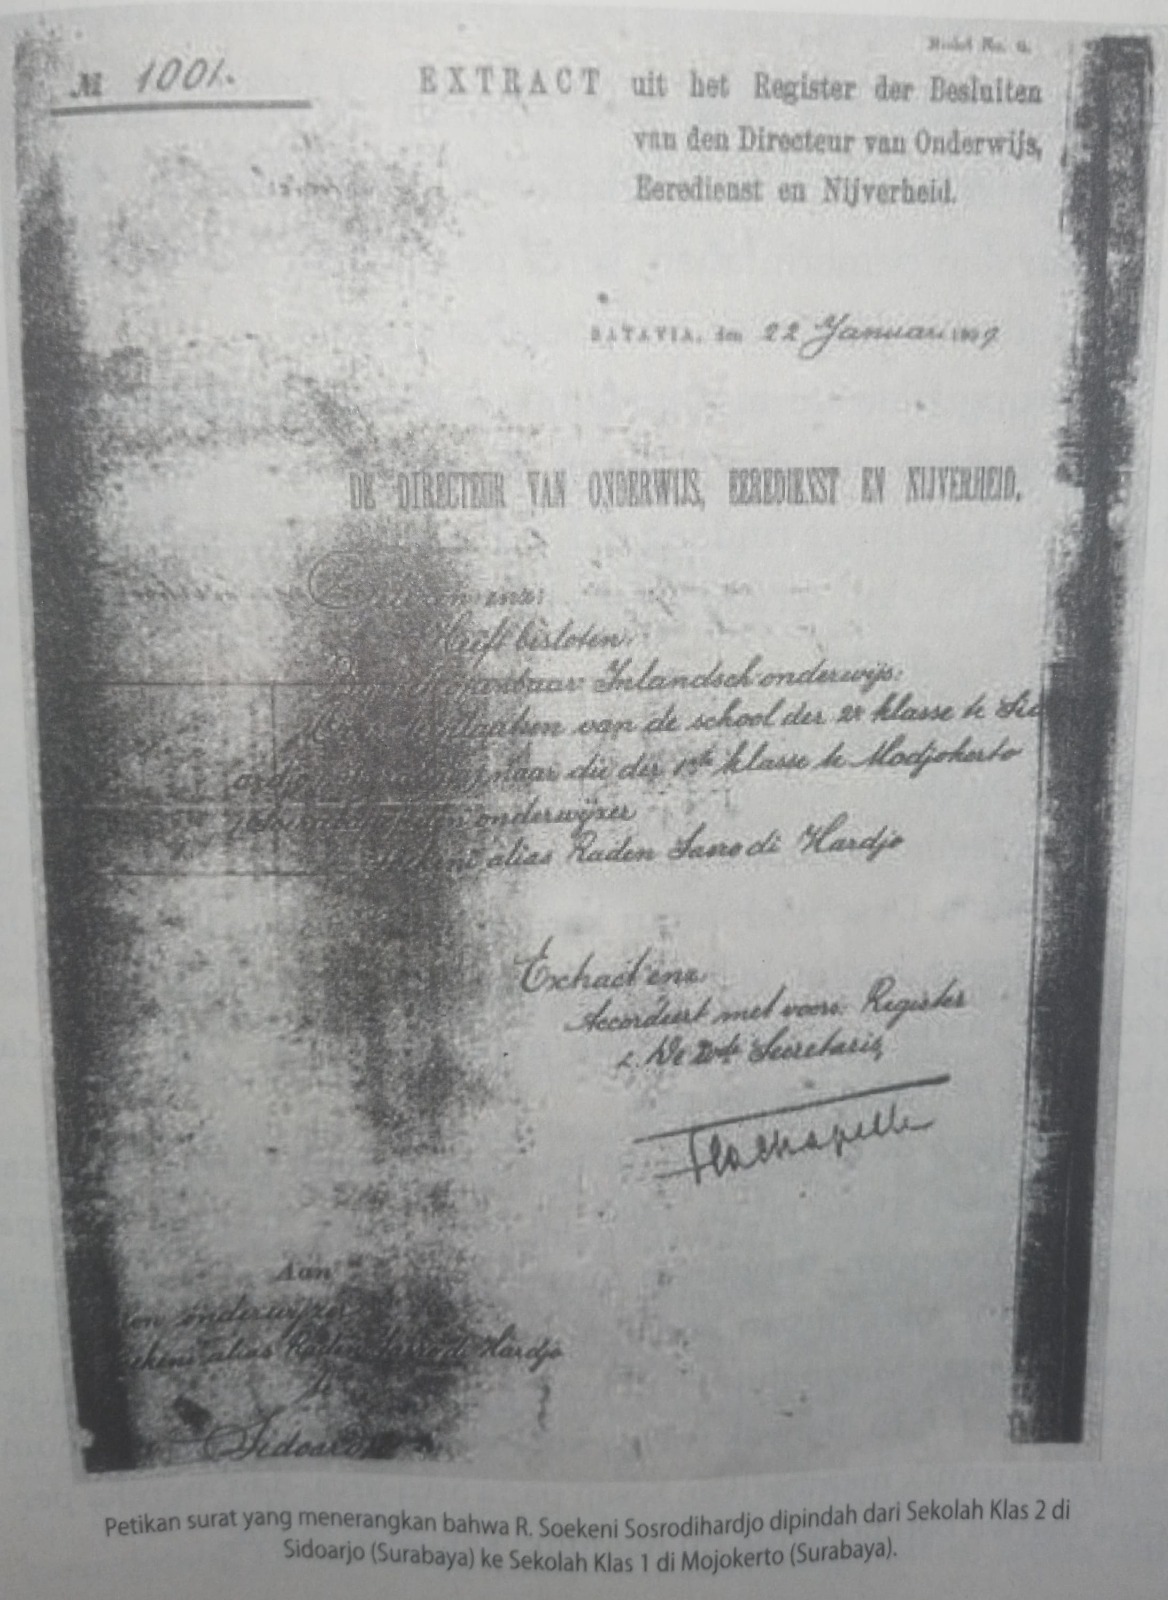 Model No. 6.
№ 1001.
EXTRACT uit het Register der Besluiten
van den Directeur van Onderwijs,
Eeredienst en Nijverheid.
BATAVIA, den 22 Januari 1909
DE DIRECTEUR VAN ONDERWIJS, EEREDIENST EN NIJVERHEID.
enz:
Heeft besloten:
Inlandsch onderwijs:
van de school der 2e klasse te Sid
ardjo naar die der 1ste klasse te Modjokerto
onderwijzer
alias Raden Sasro di Hardjo
Extract enz.
Accordeert met voors. Register
De Secretaris,
Aan
den onderwijzer
Soekeni alias Raden Sasro di Hardjo
te
Sidoardjo
Petikan surat yang menerangkan bahwa R. Soekeni Sosrodihardjo dipindah dari Sekolah Klas 2 di
Sidoarjo (Surabaya) ke Sekolah Klas 1 di Mojokerto (Surabaya).